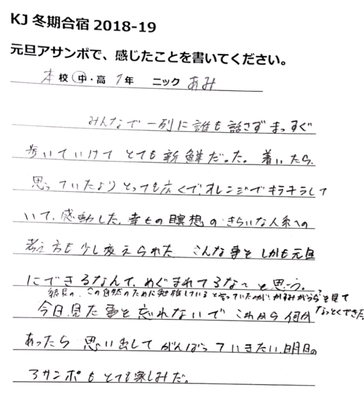 KJ 冬期合宿 2018-19
元旦アサンポで、感じたことを書いてください。
本校 中・高 1年 ニック あみ
みんなで一列に誰も話さずまっすぐ
歩いていけてとても新鮮だった。着いたら、
思っていたよりとっても広くてオレンジでキラキラして
いて、感動した。 瞑想のきらいな人への
考え方も少し変えられた こんな事をしかも元旦
にできるなんて、めぐまれてるな〜と思う。
この自然のために勉強していると言っていたのが を見て
なっとくできた
今日見た事を忘れないで これから何か
あったら 思い出して がんばっていきたい。明日の
アサンポも とても楽しみだ。